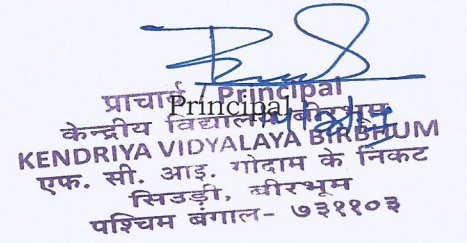 प्राचार्य / Principal
Principal
केन्द्रीय विद्यालय बीरभूम
KENDRIYA VIDYALAYA BIRBHUM
एफ. सी. आइ. गोदाम के निकट
सिउड़ी, बीरभूम
पश्चिम बंगाल- ७३११०३